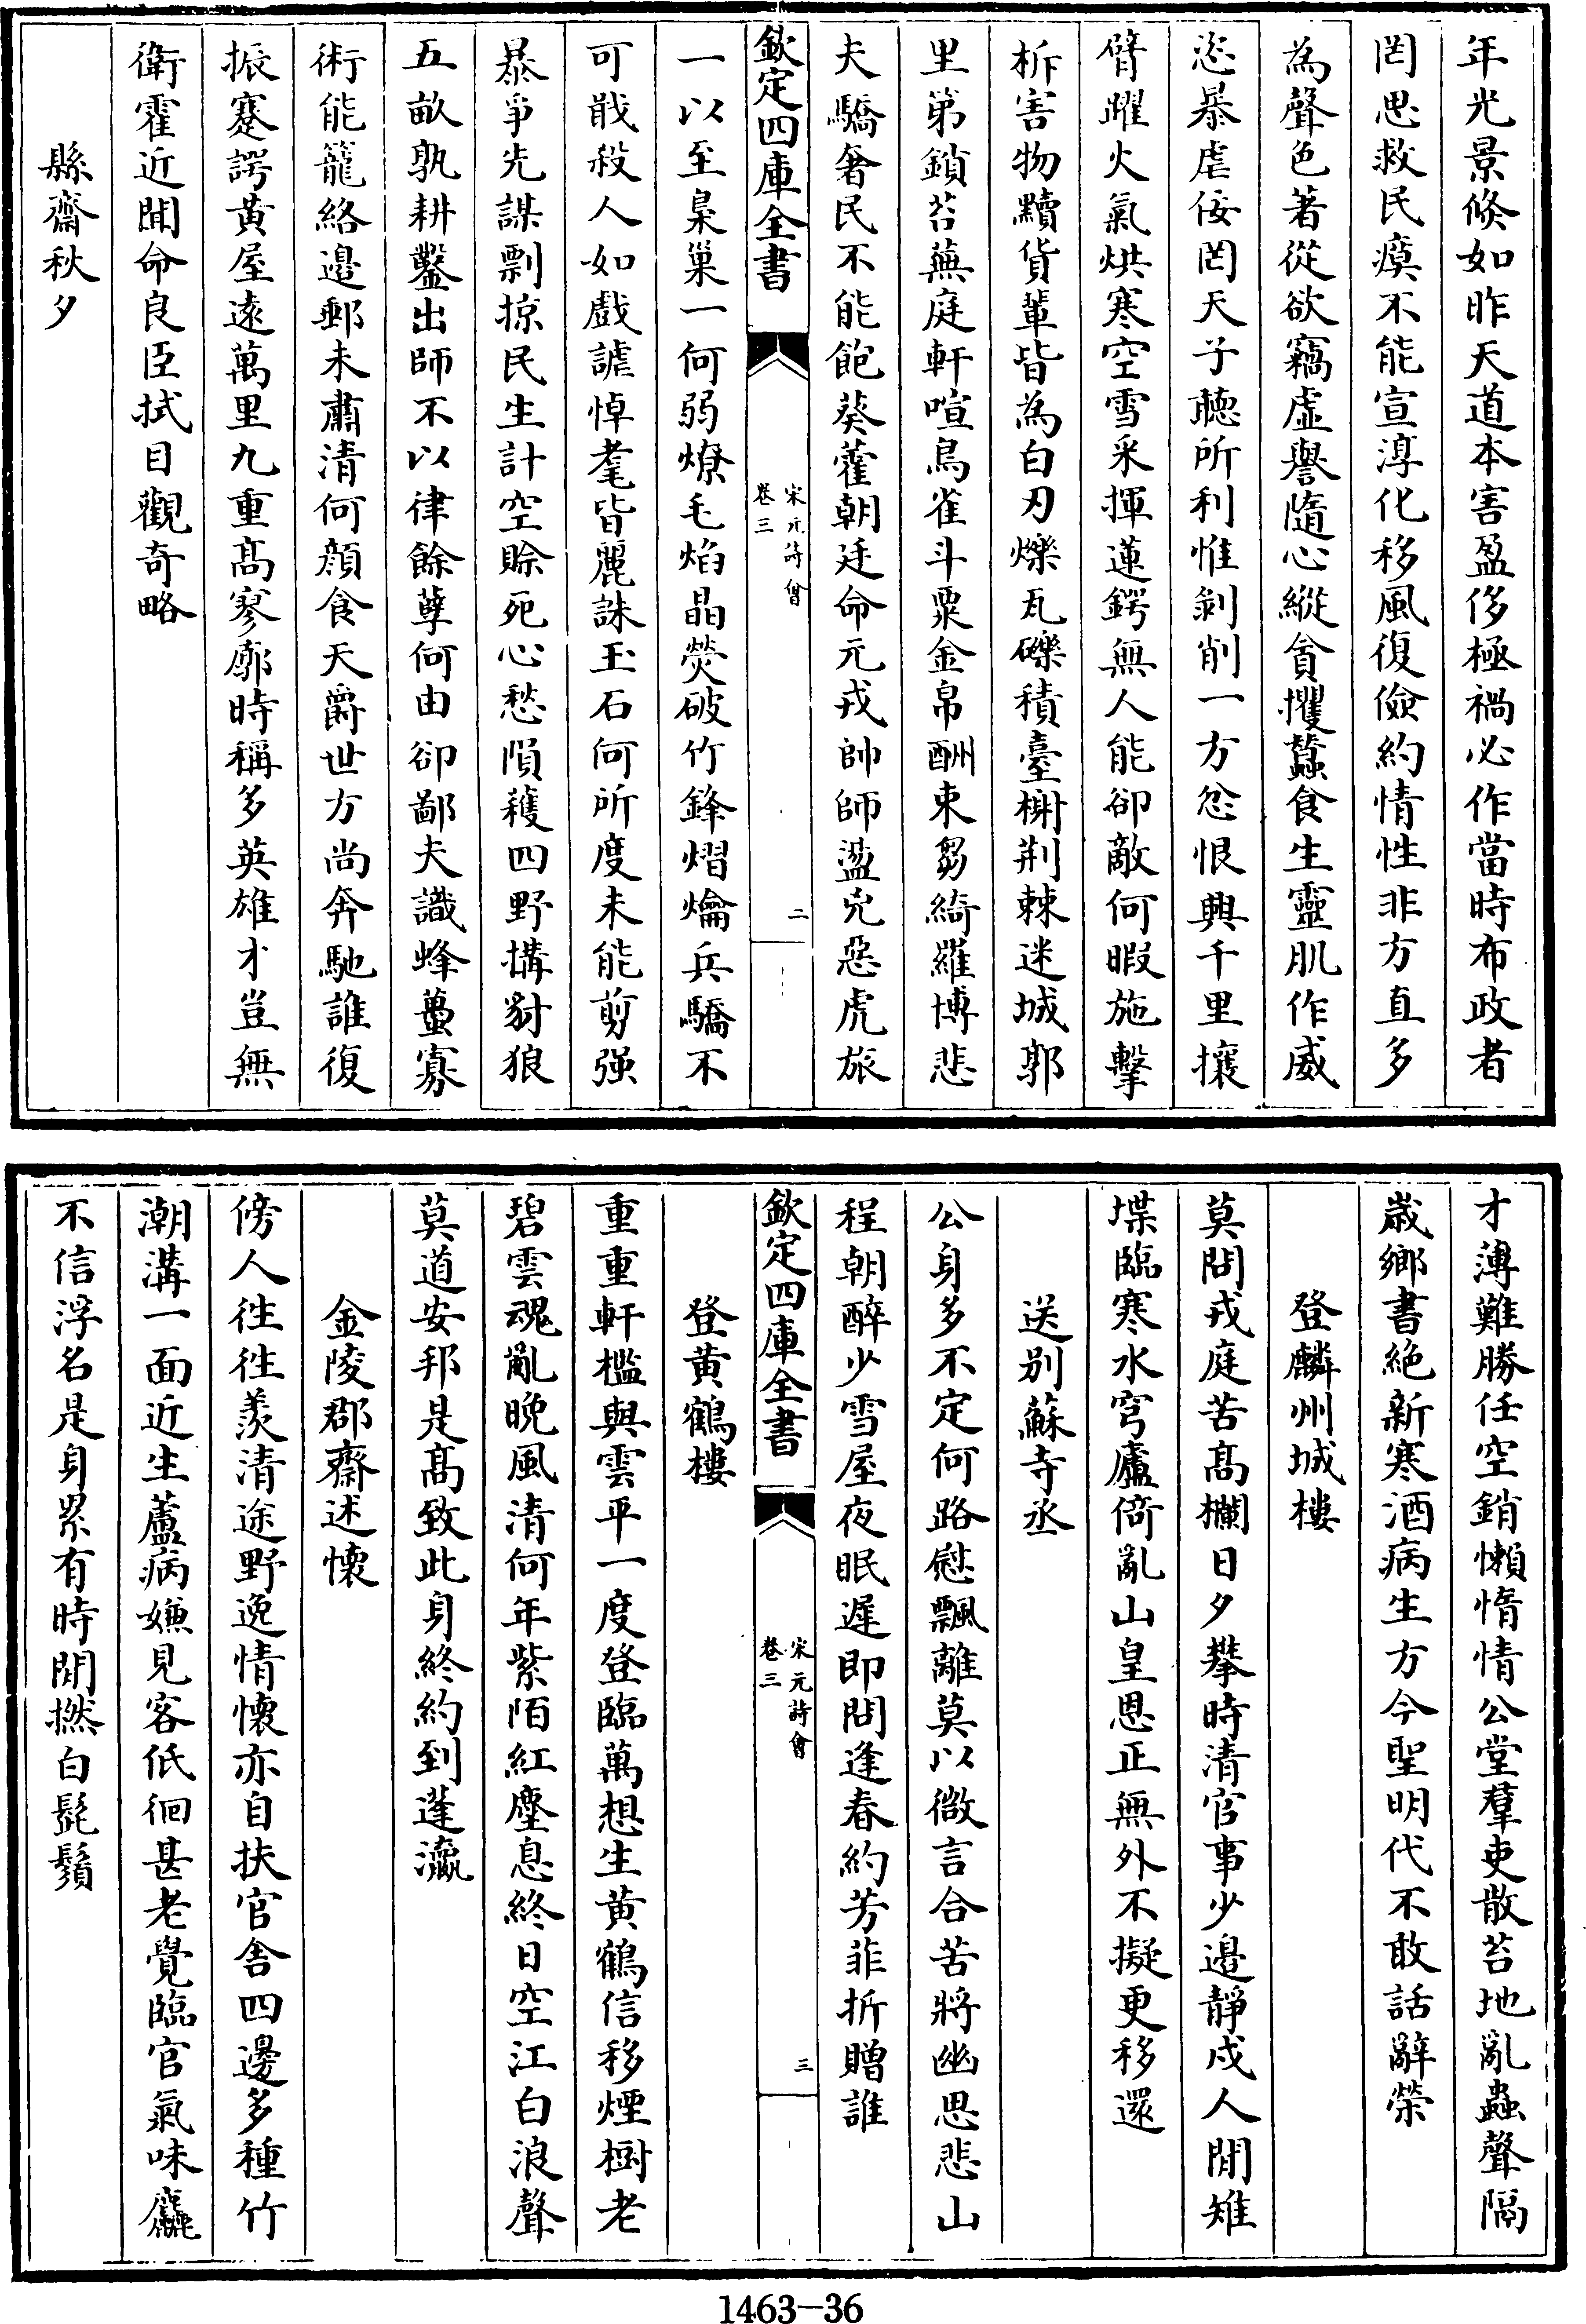 年光景倐如昨天道本害盈侈極禍必作當時布政者
罔思救民瘼不能宣淳化移風復儉約情性非方直多
為聲色著從欲竊虚譽隨心縱貪攫蠶食生靈肌作威
恣暴虐佞罔天子聽所利惟剥削一方忿恨興千里攘
臂躍火氣烘寒空雪采揮蓮鍔無人能卻敵何暇施擊
柝害物黷貨輩皆為白刃爍瓦礫積臺榭荆棘迷城郭
里第鎖苔蕪庭軒喧鳥雀斗粟金帛酬束芻綺羅博悲
夫驕奢民不能飽葵藿朝廷命元戎帥師盪兇惡虎旅
欽定四庫全書
宋元詩會
卷三
二
一以至梟巢一何弱燎毛焰晶熒破竹鋒熠爚兵驕不
可戢殺人如戲謔悼耄皆麗誅玉石何所度未能剪强
暴爭先謀剽掠民生計空賒死心愁隕穫四野搆豺狼
五畝孰耕鑿出師不以律餘孽何由卻鄙夫識蜂蠆寡
術能籠絡邉郵未肅清何顔食天爵世方尚奔馳誰復
振蹇諤黄屋逺萬里九重髙寥廓時稱多英雄才豈無
衛霍近聞命良臣拭目觀奇略
縣齋秋夕
才薄難勝任空銷懶惰情公堂羣吏散苔地亂蟲聲隔
嵗鄉書絶新寒酒病生方今聖明代不敢話辭榮
登麟州城樓
莫問戎庭苦髙欄日夕攀時清官事少邉靜戍人閒雉
堞臨寒水穹廬倚亂山皇恩正無外不擬更移還
送别蘇寺丞
公身多不定何路慰飄離莫以微言合苦將幽思悲山
程朝醉少雪屋夜眠遲即問逢春約芳菲折贈誰
欽定四庫全書
宋元詩會
卷三
三
登黄鶴樓
重重軒檻與雲平一度登臨萬想生黄鶴信移煙樹老
碧雲魂亂晩風清何年紫陌紅塵息終日空江白浪聲
莫道安邦是髙致此身終約到蓬瀛
金陵郡齋述懷
傍人徃徃羨清途野逸情懷亦自扶官舎四邊多種竹
潮溝一面近生蘆病嫌見客低徊甚老覺臨官氣味麤
不信浮名是身累有時閒撚白髭鬚
1463-36